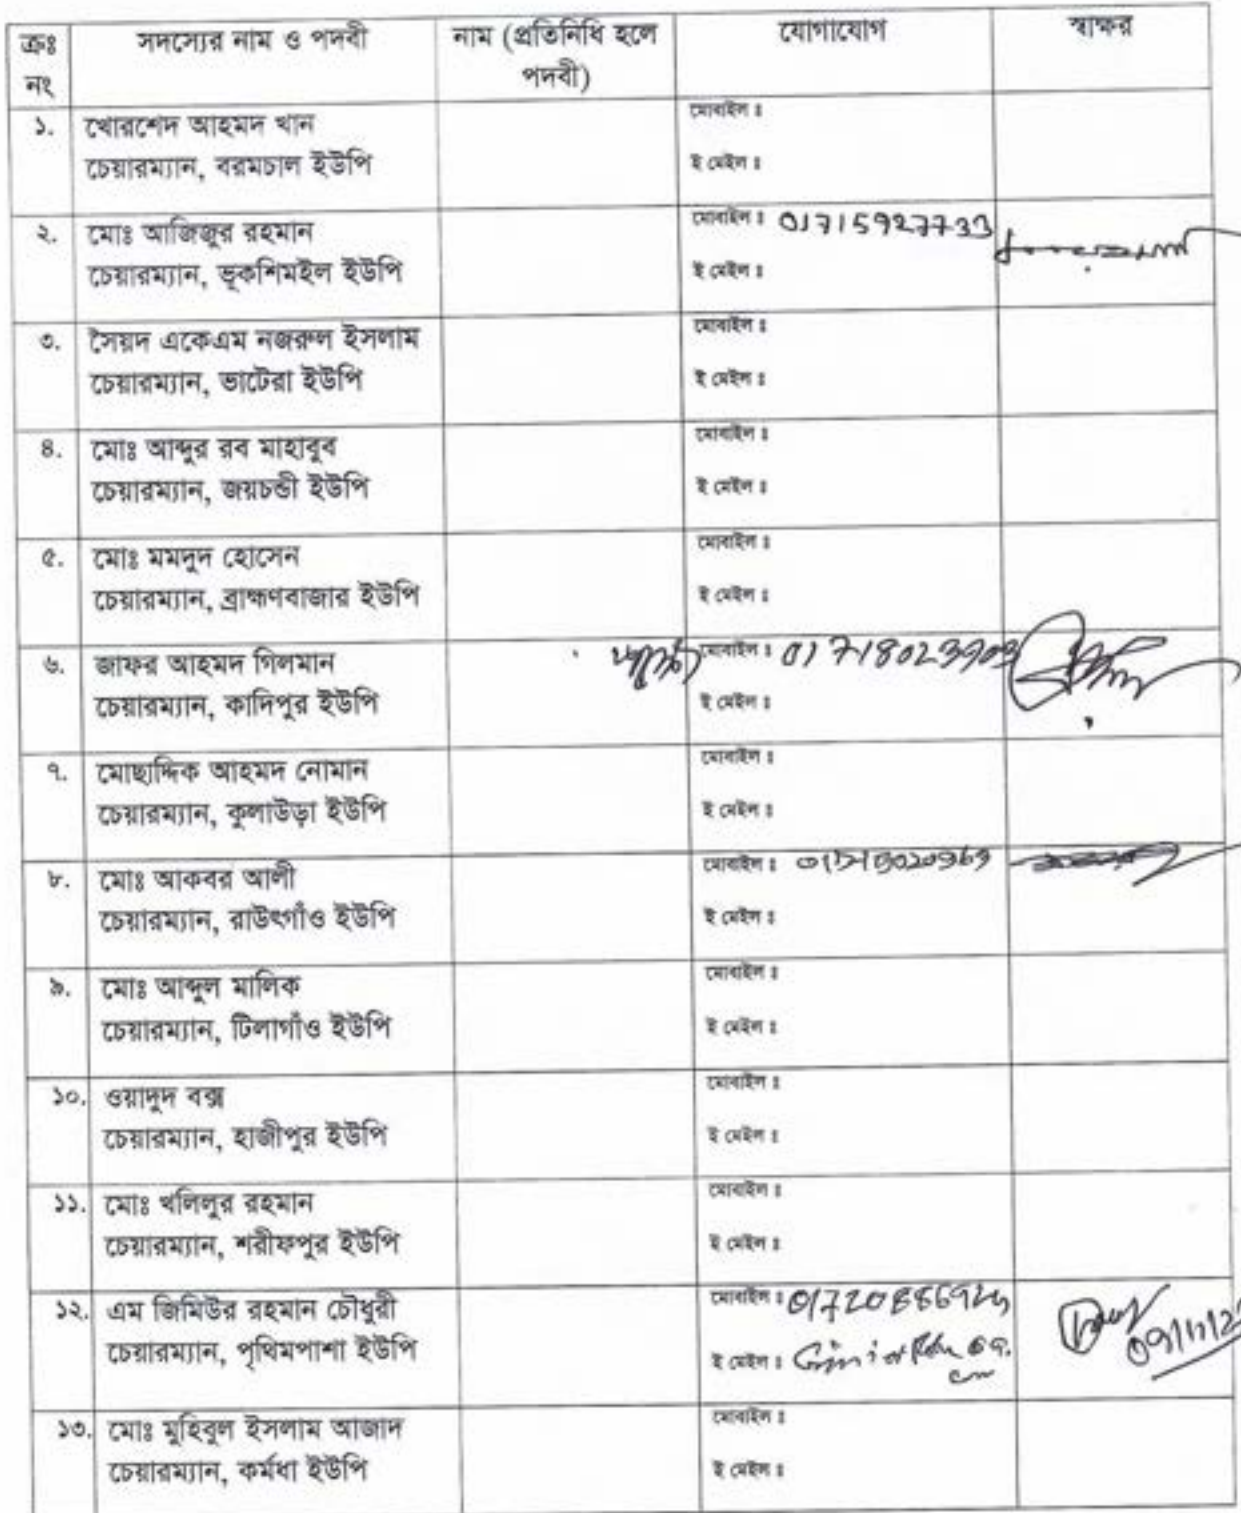 ক্রঃ নং
সদস্যের নাম ও পদবী
নাম (প্রতিনিধি হলে পদবী)
যোগাযোগ
স্বাক্ষর
১.
খোরশেদ আহমদ খান
চেয়ারম্যান, বরমচাল ইউপি
মোবাইল ঃ
ই মেইল ঃ
২.
মোঃ আজিজুর রহমান
চেয়ারম্যান, ভূকশিমইল ইউপি
মোবাইল ঃ 01715927733
ই মেইল ঃ
৩.
সৈয়দ একেএম নজরুল ইসলাম
চেয়ারম্যান, ভাটেরা ইউপি
মোবাইল ঃ
ই মেইল ঃ
৪.
মোঃ আব্দুর রব মাহাবুব
চেয়ারম্যান, জয়চন্ডী ইউপি
মোবাইল ঃ
ই মেইল ঃ
৫.
মোঃ মমদুদ হোসেন
চেয়ারম্যান, ব্রাহ্মণবাজার ইউপি
মোবাইল ঃ
ই মেইল ঃ
৬.
জাফর আহমদ গিলমান
চেয়ারম্যান, কাদিপুর ইউপি
মোবাইল ঃ
ই মেইল ঃ
৭.
মোছাদ্দিক আহমদ নোমান
চেয়ারম্যান, কুলাউড়া ইউপি
মোবাইল ঃ
ই মেইল ঃ
৮.
মোঃ আকবর আলী
চেয়ারম্যান, রাউৎগাঁও ইউপি
মোবাইল ঃ
ই মেইল ঃ
৯.
মোঃ আব্দুল মালিক
চেয়ারম্যান, টিলাগাঁও ইউপি
মোবাইল ঃ
ই মেইল ঃ
১০.
ওয়াদুদ বক্স
চেয়ারম্যান, হাজীপুর ইউপি
মোবাইল ঃ
ই মেইল ঃ
১১.
মোঃ খলিলুর রহমান
চেয়ারম্যান, শরীফপুর ইউপি
মোবাইল ঃ
ই মেইল ঃ
১২.
এম জিমিউর রহমান চৌধুরী
চেয়ারম্যান, পৃথিমপাশা ইউপি
মোবাইল ঃ
ই মেইল ঃ
১৩.
মোঃ মুহিবুল ইসলাম আজাদ
চেয়ারম্যান, কর্মধা ইউপি
মোবাইল ঃ
ই মেইল ঃ